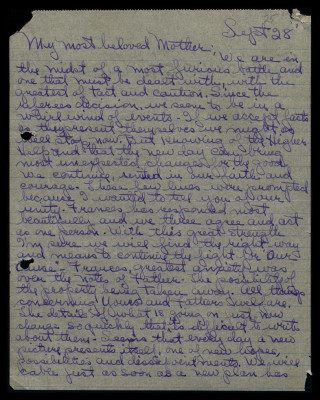 Sept 28
My most beloved Mother,
We are in
the midst of a most furious battle and
one that must be dealt with, with the
greatest of tact and caution. Since the
referees decision, we seem to be in a
whirl wind of events. If we accept facts
as they present themselves we might as
well stop now, but knowing of the Higher
help and that the new day can bring
most unexpected changes for the good,
we continue, united in our faith and
courage. These few lines were prompted
because I wanted to tell you of our
unity. Frances has responded most
beautifully and we three agree and act
as one person. With this great strength
I'm sure we will find the right way
and means to continue the fight for "Our
Cause". Frances, greatest anxiety was
over the notes of Father. The possibility of
the property being taken away. All things
concerning Yours and Fathers welfare.
The details of what is going on just now
change so quickly that its difficult to write
about them. Seems that every day a new
picture presents itself, one of new hopes,
possibilities and disappointments. We will
leave just as soon as a new plan has